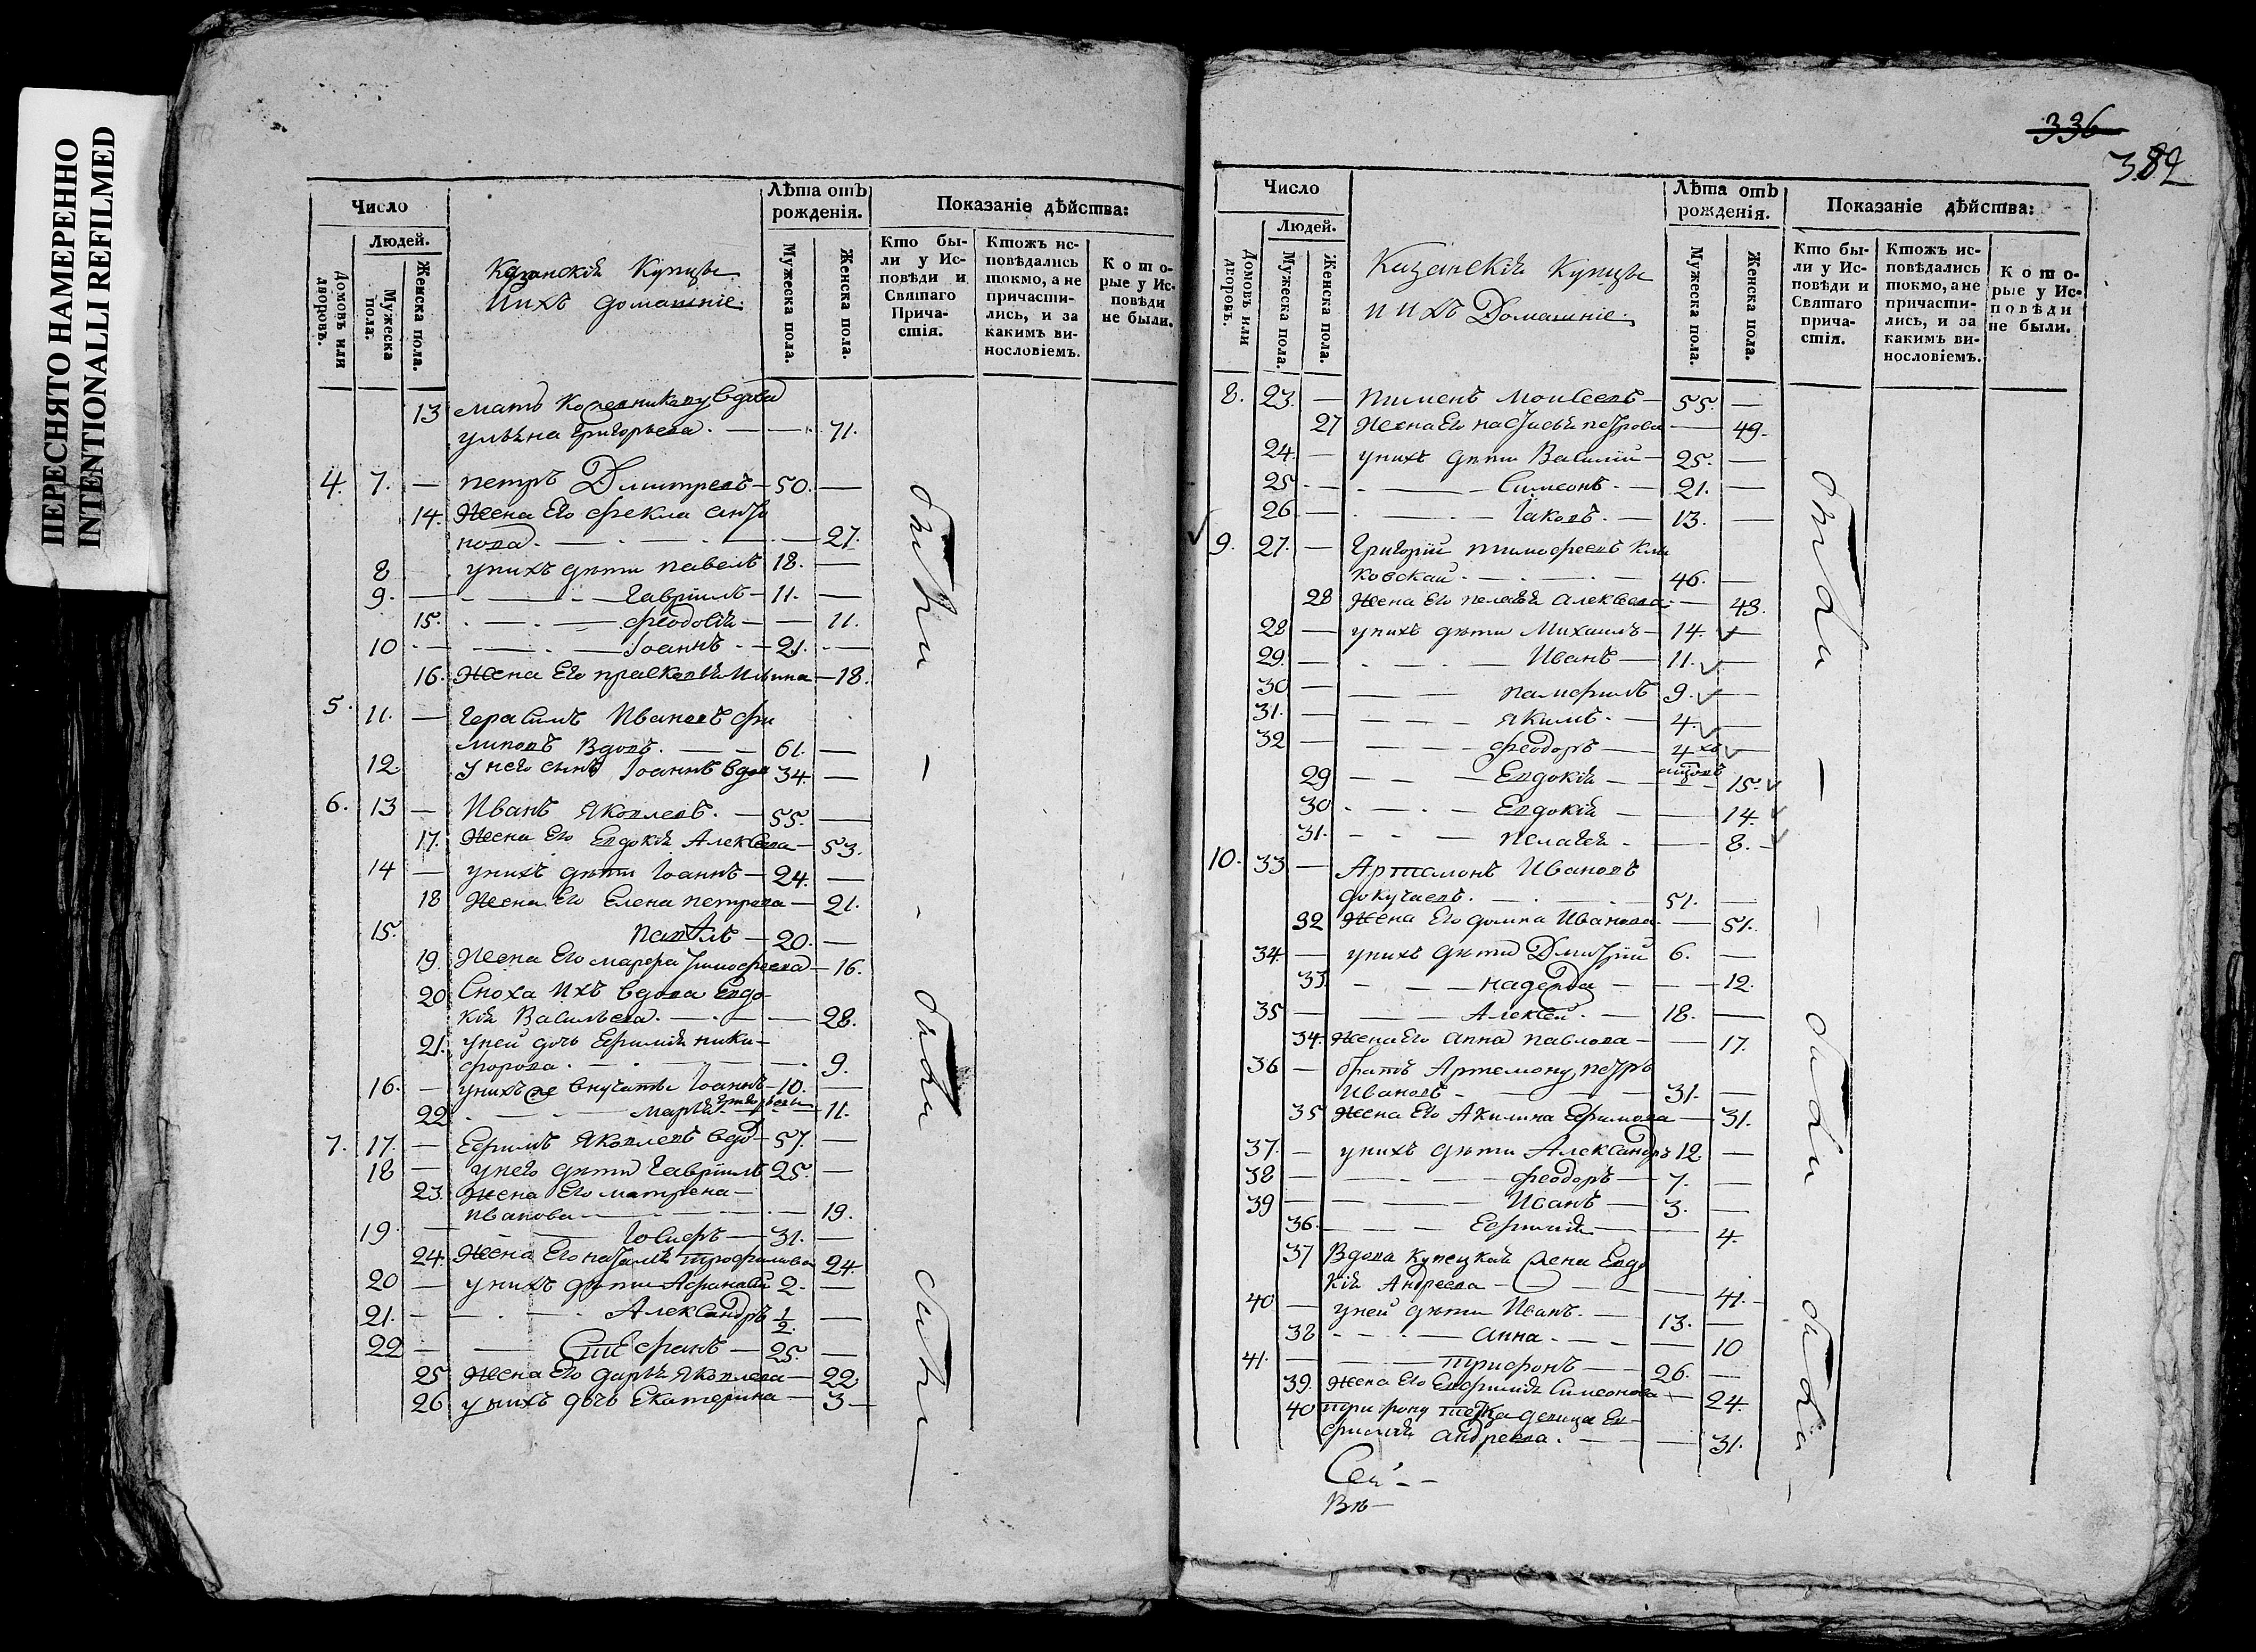 ПЕРЕСНЯТО НАМЕРЕННО
INTENTIONALLI REFILMED
Число
Людей.
Домовъ или дворовъ.
Мужеска пола.
Женска пола.
Казанскій Купцы
И ихъ домашніе.
Лѣта отъ рожденія.
Мужеска пола.
Женска пола.
Показаніе дѣйства:
Кто были у Исповѣди и Святаго Причастія.
Ктожъ исповѣдались токмо, а не причастились, и за какимъ винословіемъ.
Которые у Исповѣди не были.
13 мать вдова
ульяна Григорьева. — 71.
4. 7. — петръ Дмитревъ — 50. —
14. Жена Его фекла анто
нова. — 27.
8 у нихъ дѣти павелъ 18. —
9. — Гаврiилъ — 11. —
15. — феодосія — 11.
10 — Іоаннъ — 21. —
16. Жена Его прасковья Ильина — 18.
5. 11. — Герасимъ Ивановъ фи
липовъ Вдовъ. — 61. —
12 У него сынъ Іоаннъ вдов 34 —
6. 13 — Иванъ Яковлевъ. — 55. —
17. Жена Его Евдокія Алексѣева — 53.
14 — у нихъ дѣти Іоаннъ — 24. —
18 Жена Его Елена петрова — 21.
15. павелъ — 20. —
19. Жена Его марфа тимофеева — 16.
20 Сноха ихъ вдова Евдо-
кія Васильева. — 28.
21. у ней дочь Ефимія ники-
форова. — 9.
16. — у нихъ же внучаты Іоаннъ — 10. —
22 — марья Григорьевы — 11.
7. 17. — Ефимъ Яковлевъ вдов — 57. —
18 — у него дѣти Гаврiилъ 25. —
23. Жена Его матрена —
иванова — 19.
19. — Іосифъ — 31. —
24. Жена Его наталья трофимова 24.
20 — у нихъ дѣти Афанасій 2. —
21. — Александръ 1/2. —
22 — Стефанъ — 25. —
25 Жена Его дарья Яковлева — 22.
26 у нихъ дочь Екатерина — 3 —
были — были были
336
382
Число
Людей.
Домовъ или дворовъ.
Мужеска пола.
Женска пола.
Казанскій Купцы
и ихъ Домашніе.
Лѣта отъ рожденія.
Мужеска пола.
Женска пола.
Показаніе дѣйства:
Кто были у Исповѣди и Святаго причастія.
Ктожъ исповѣдались токмо, а не причастились, и за какимъ винословіемъ.
Которые у Исповѣди не были.
8. 23. — Пименъ Моисеевъ — 55. —
27 Жена Его настасья петрова — 49.
24. — у нихъ дѣти Василій — 25. —
25. — Симеонъ. — 21. —
26 — Іаковъ. — 13. —
9. 27. — Григорій тимофеевъ Кли
ковскай. — 46. —
28 Жена Его пелагея Алексѣева — 43.
28 — у нихъ дѣти Михаилъ — 14. —
29. — Иванъ — 11. —
30 — памфилъ 9. —
31. — Якимъ. — 4. —
32 — феодоръ — 4хъ —
29 — Евдокія — 15.
30 — Евдокія — 14.
31. — пелагея — 8.
10. 33 — Артамонъ Ивановъ
докучаевъ. — 51. —
32 Жена Его домна Иванова — 51.
34 — у нихъ дѣти Дмитрiй 6. —
33. — надежда — 12.
35 — Алексѣй. — 18. —
34. Жена Его анна павлова — 17.
36 — братъ Артемону петръ
Ивановъ — 31. —
35 Жена Его Акилина Ефимова — 31.
37. — у нихъ дѣти Александръ 12 —
38 — феодоръ — 7. —
39 — Иванъ — 3. —
36. — Ефимія — 4.
37 Вдова купецкая жена Евдо
кія Андреева — 41.
40 — у ней дѣти Иванъ. — 13. —
38 — анна. — 10
41. — трифонъ — 26. —
39. Жена Его Евфимія Симеонова — 24.
40 трифону тетка девица Ев-
фимія андреева. — 31.
были — были были
Вѣ —